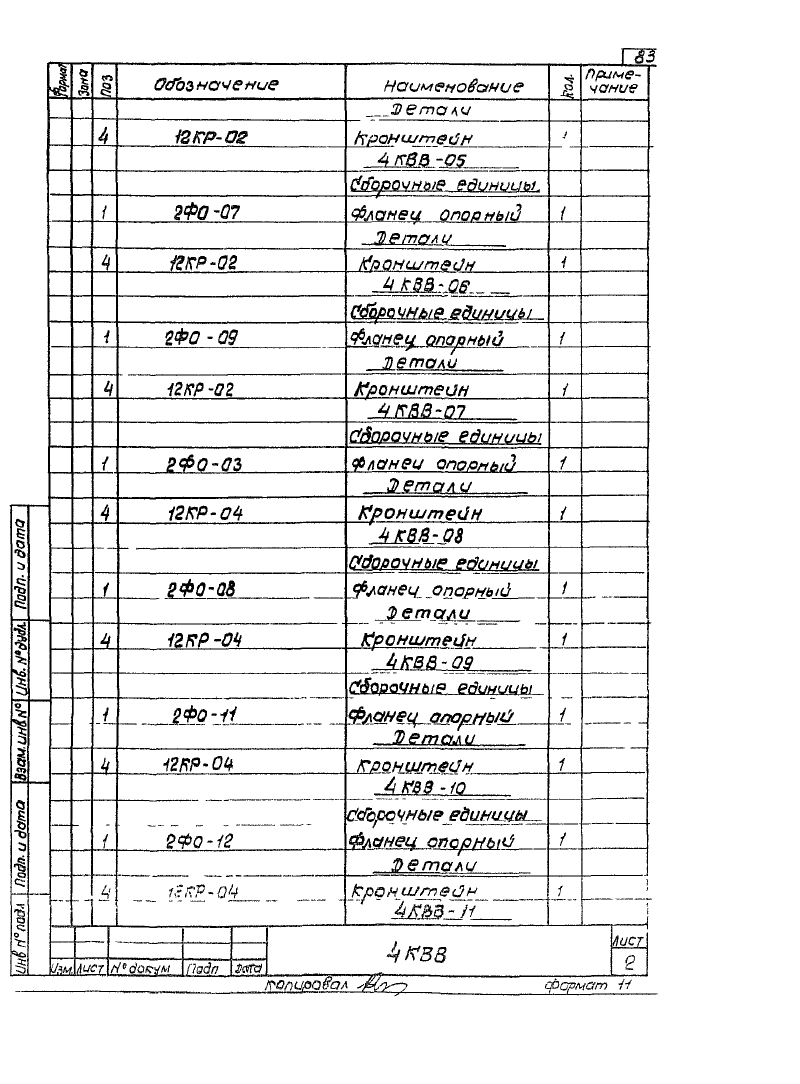 83
Формат Зона Поз Обозначение Наименование Кол. Приме-
чание
Детали
4 12КР-02 Кронштейн 1
4КВВ-05
Сборочные единицы
1 2ФО-07 Фланец опорный 1
Детали
4 12КР-02 Кронштейн 1
4КВВ-06
Сборочные единицы
1 2ФО-09 Фланец опорный 1
Детали
4 12КР-02 Кронштейн 1
4КВВ-07
Сборочные единицы
1 2ФО-03 Фланец опорный 1
Детали
4 12КР-04 Кронштейн 1
4КВВ-08
Сборочные единицы
1 2ФО-08 Фланец опорный 1
Детали
4 12КР-04 Кронштейн 1
4КВВ-09
Сборочные единицы
1 2ФО-11 Фланец опорный 1
Детали
4 12КР-04 Кронштейн 1
4КВВ-10
Сборочные единицы
1 2ФО-12 Фланец опорный 1
Детали
4 12КР-04 Кронштейн 1
4КВВ-11
Подп. и дата
Инв. № дубл.
Взам. инв №
Подп. и дата
Инв № подл
Изм Лист № докум Подп Дата
4КВВ
Лист
2
Копировал
Формат 11